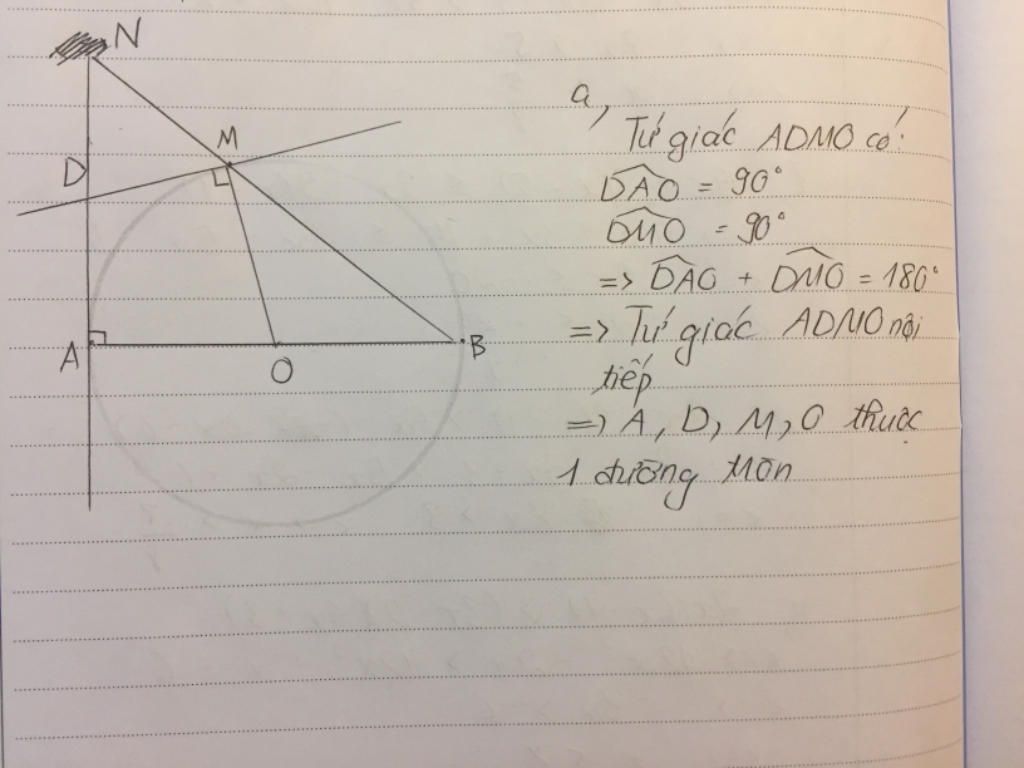 N
M
D
A
O
B
a,
Tứ giác ADMO có:
DAO = 90°
DMO = 90°
=> DAO + DMO = 180°
=> Tứ giác ADMO nội
tiếp
=> A, D, M, O thuộc
1 đường tròn